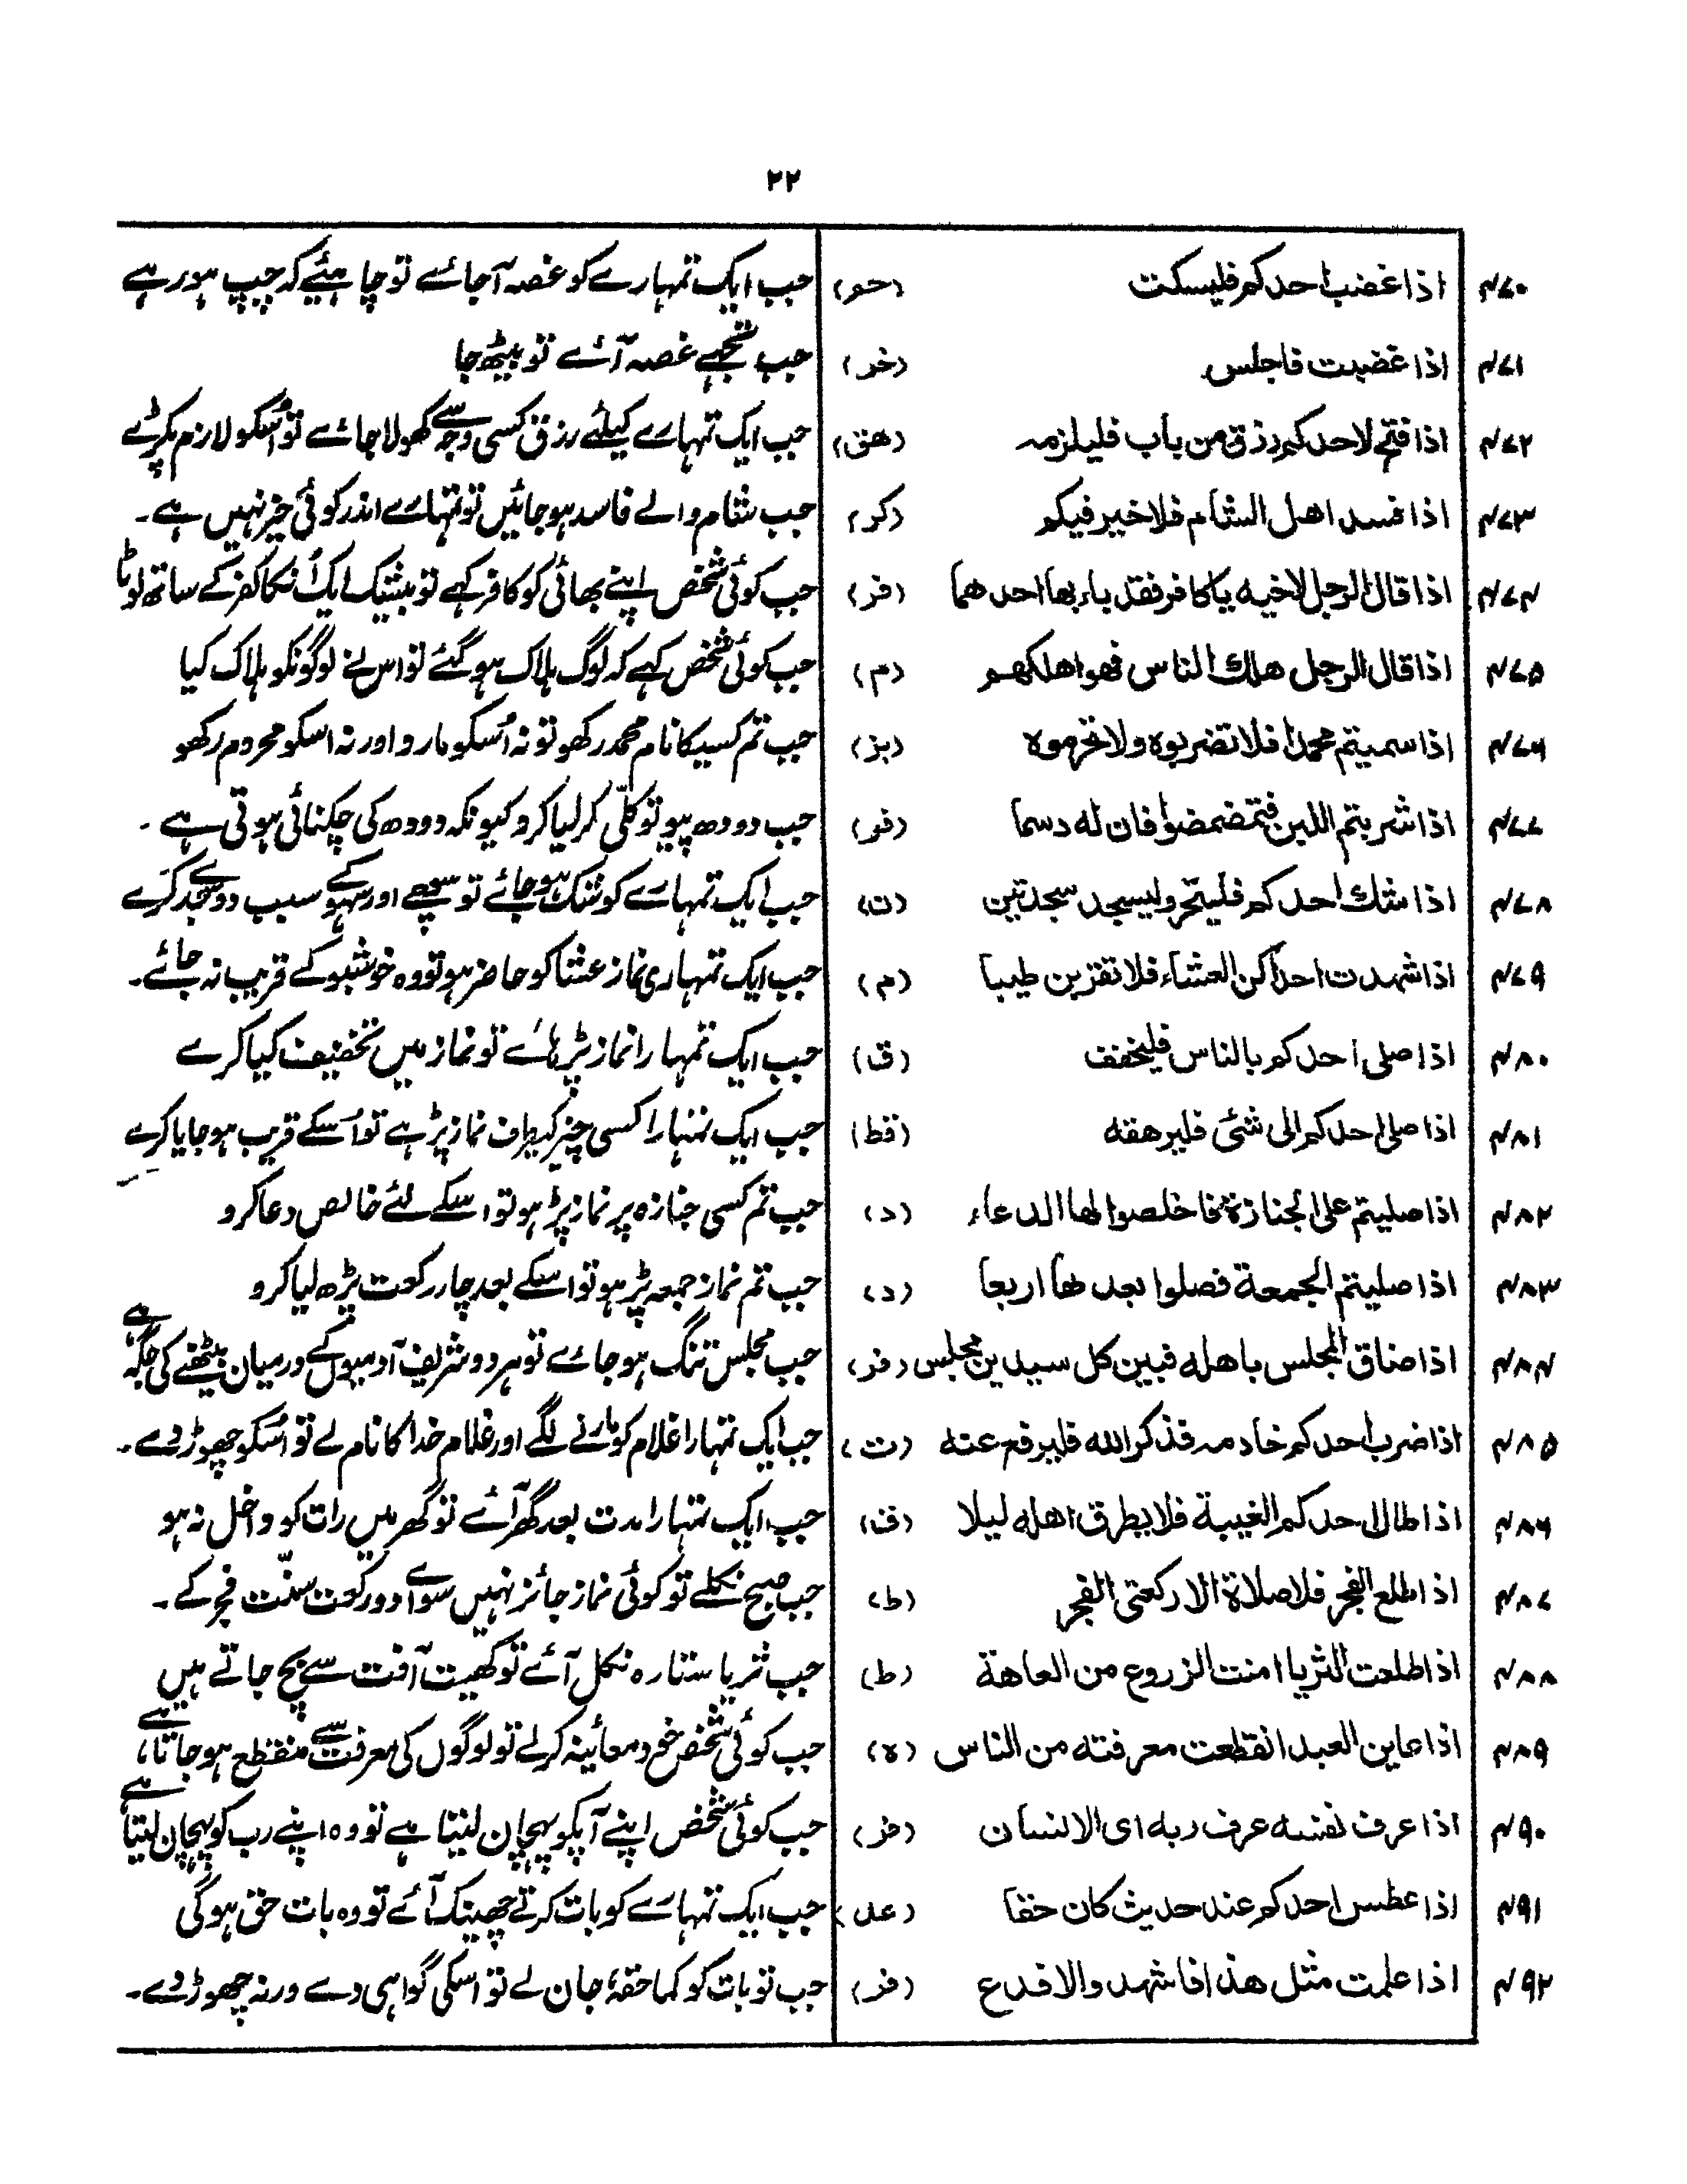 ۲۲
۴۷۰ اذا غضب احدکم فلیسکت (حو) جب ایک تمہارے کو غصہ آجائے تو چاہئیے کہ چپ ہو رہے
۴۷۱ اذا غضبت فاجلس (خر) جب تجھے غصہ آئے تو بیٹھ جا
۴۷۲ اذا فتح لاحدکم رزق من باب فلیلزمہ (ھق) جب ایک تمہارے کیلئے رزق کسی وجہ سے کھولا جائے تو اُسکو لازم پکڑے
۴۷۳ اذا فسد اھل الشام فلا خیر فیکم (کر) جب شام والے فاسد ہو جائیں تو تمہارے اندر کوئی خیر نہیں ہے۔
۴۷۴ اذا قال الرجل لاخیہ یا کافر فقد باء بھا احدھما (فر) جب کوئی شخص اپنے بھائی کو کافر کہے تو بیشک ایک اُنکا کفر کے ساتھ لوٹا
۴۷۵ اذا قال الرجل ھلك الناس فھو اھلکھم (م) جب کوئی شخص کہے کہ لوگ ہلاک ہو گئے تو اس نے لوگونکو ہلاک کیا
۴۷۶ اذا سمیتم محمدا فلا تضربوہ ولا تحرموہ (بز) جب تم کسیکا نام محمد رکھو تو نہ اُسکو مارو اور نہ اسکو محروم رکھو
۴۷۷ اذا شربتم اللبن فتمضمضوا فان لہ دسما (فو) جب دودھ پیو تو کلّی کر لیا کرو کیونکہ دودھ کی چکنائی ہوتی ہے۔
۴۷۸ اذا شك احدکم فلیتحر ولیسجد سجدتین (ن) جب ایک تمہارے کو شک ہو جائے تو سوچے اور سہو کے سبب دو سجدے کرے
۴۷۹ اذا شھدت احداکن العشاء فلا تقربن طیبا (م) جب ایک تمہاری نماز عشا کو حاضر ہو تو وہ خوشبو کے قریب نہ جائے۔
۴۸۰ اذا صلی احدکم بالناس فلیخفف (ق) جب ایک تمہارا نماز پڑہائے تو نماز میں تخفیف کیا کرے
۴۸۱ اذا صلی احدکم الی شئی فلیرھقہ (قط) جب ایک تمہارا کسی چیز کیطرف نماز پڑہے تو اُسکے قریب ہو جایا کرے
۴۸۲ اذا صلیتم علی الجنازۃ فاخلصوا لھا الدعاء (د) جب تم کسی جنازہ پر نماز پڑہو تو اسکے لئے خالص دعا کرو
۴۸۳ اذا صلیتم الجمعۃ فصلوا بعدھا اربعا (د) جب تم نماز جمعہ پڑہو تو اسکے بعد چار رکعت پڑھ لیا کرو
۴۸۴ اذا ضاق المجلس باھلہ فبین کل سیدین مجلس (فر) جب مجلس تنگ ہو جائے تو ہر دو شریف آدمیوں کے درمیان بیٹھنے کی جگہ ہے
۴۸۵ اذا ضرب احدکم خادمہ فذکر اللہ فلیرفع عنہ (ت) جب ایک تمہارا غلام کو مارنے لگے اور غلام خدا کا نام لے تو اُسکو چھوڑ دے۔
۴۸۶ اذا طال احدکم الغیبۃ فلا یطرق اھلہ لیلا (ق) جب ایک تمہارا مدت بعد گھر آئے تو گھر میں رات کو داخل نہ ہو
۴۸۷ اذا طلع الفجر فلا صلاۃ الا رکعتی الفجر (ط) جب صبح نکلے تو کوئی نماز جائز نہیں سوائے دو رکعت سنّت فجر کے۔
۴۸۸ اذا طلعت الثریا امنت الزروع من العاھۃ (ط) جب ثریا ستارہ نکل آئے تو کھیت آفت سے بچ جاتے ہیں
۴۸۹ اذا عاین العبد انقطعت معرفتہ من الناس (ہ) جب کوئی شخص خود معائینہ کرلے تو لوگوں کی معرفت سے منقطع ہو جاتا ہے
۴۹۰ اذا عرف نفسہ عرف ربہ ای الانسان (فر) جب کوئی شخص اپنے آپکو پہچان لیتا ہے تو وہ اپنے رب کو پہچان لیتا ہے
۴۹۱ اذا عطس احدکم عند حدیث کان حقا (عد) جب ایک تمہارے کو بات کرتے چھینک آئے تو وہ بات حق ہوگی
۴۹۲ اذا علمت مثل ھذا فاشھد والا فدع (فر) جب تو بات کو کماحقہٗ جان لے تو اسکی گواہی دے ورنہ چھوڑ دے۔